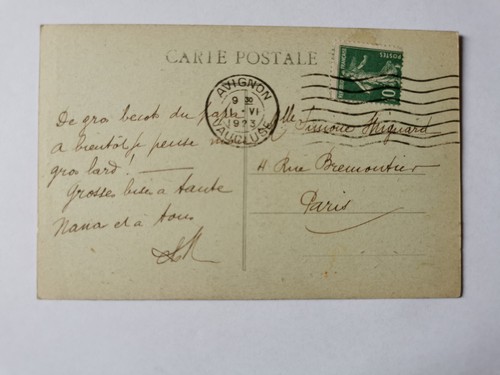 CARTE POSTALE
AVIGNON
9 30
11 - VI
1923
VAUCLUSE
POSTES
De gros becots du papa
a bientôt je pense m
gros lard! —
Grosses bises à tante
Nana et à tous
Mlle Simone
4 Rue Bremontier
Paris